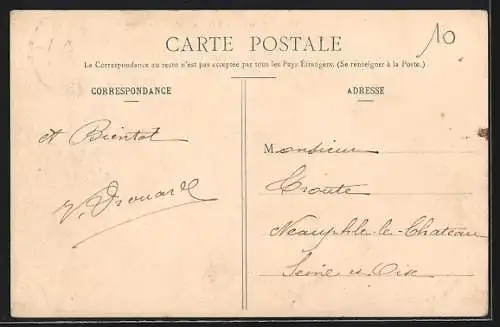 CARTE POSTALE
10
Le Correspondance au recto n'est pas acceptée par tous les Pays Étrangers. (Se renseigner à la Poste.)
CORRESPONDANCE
A Bientot
V. Drouard
ADRESSE
Monsieur
Croute
Neauphle-le-Chateau
Seine et Oise